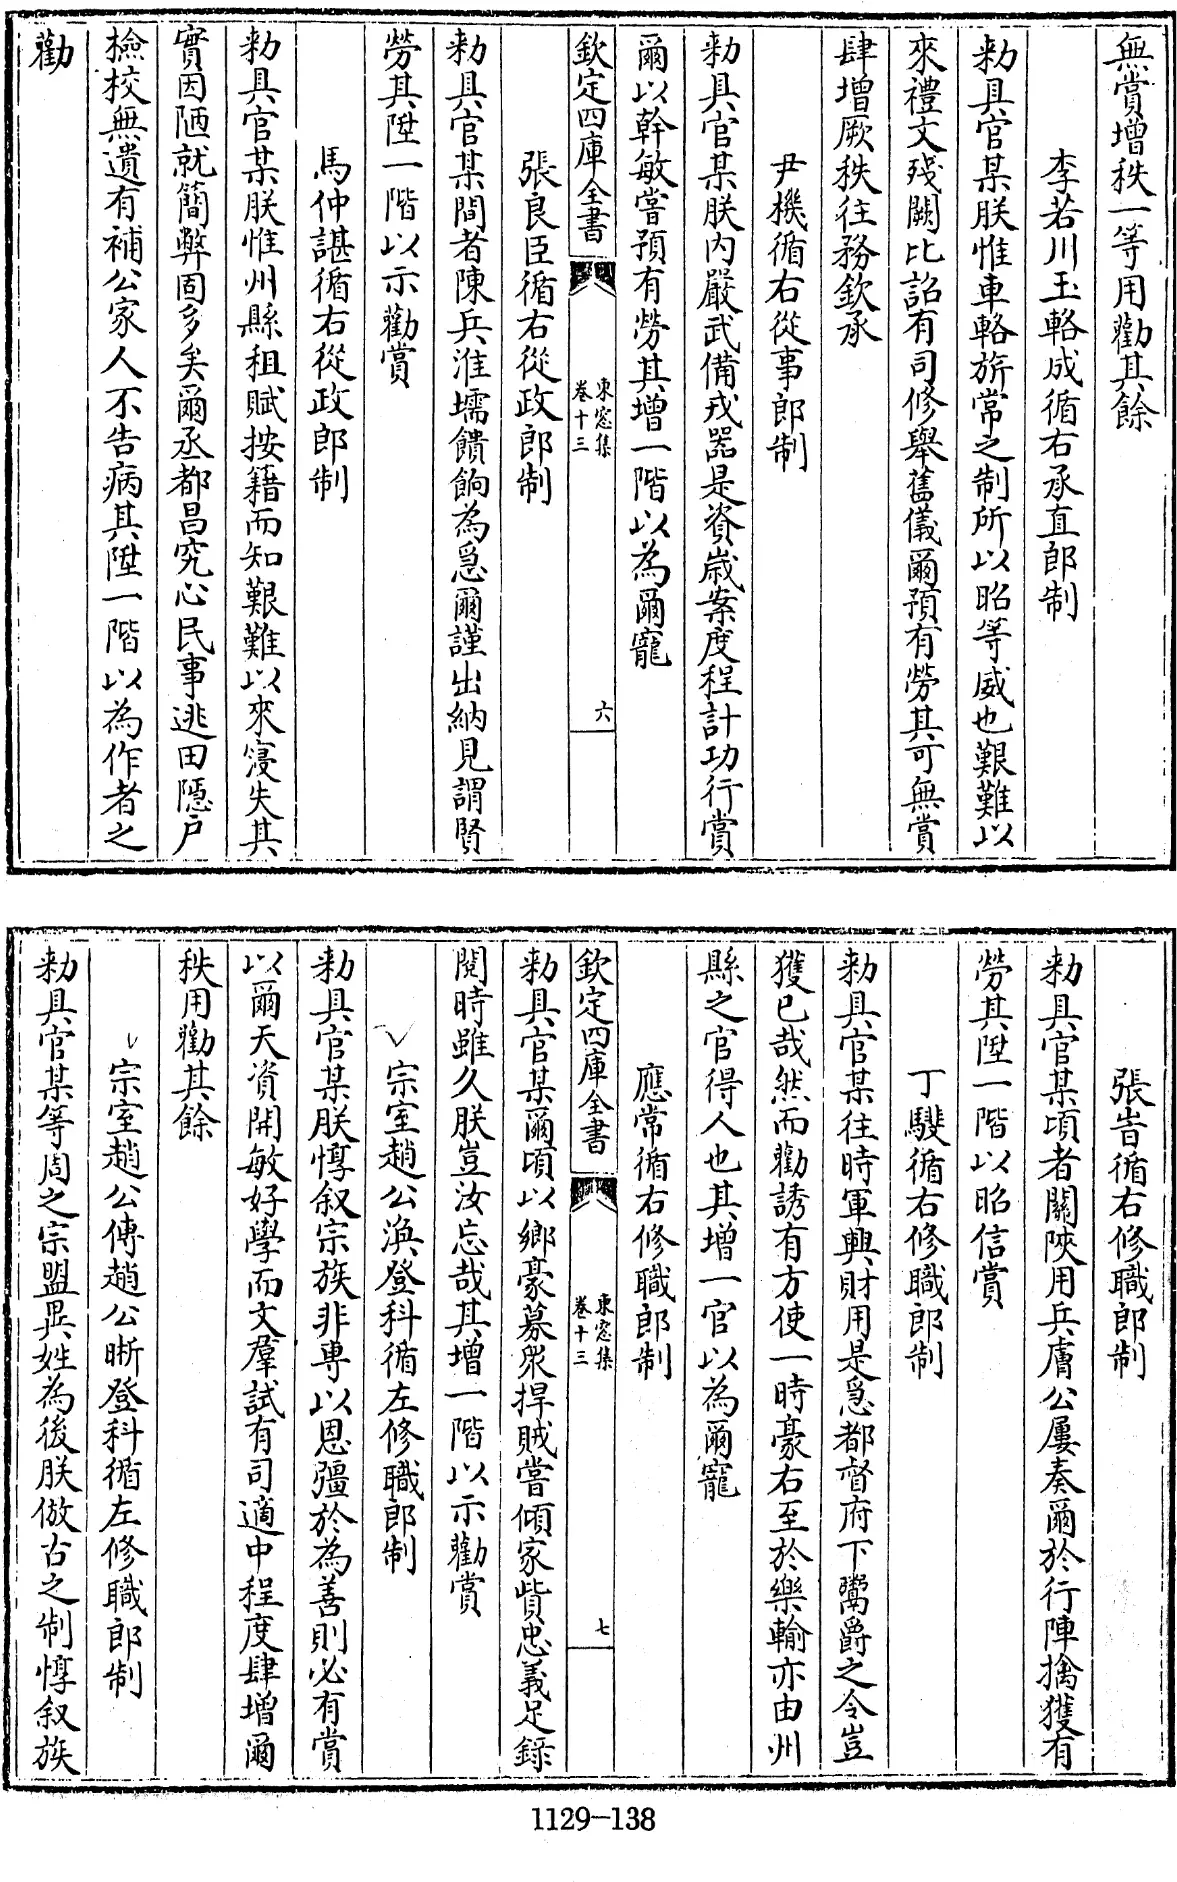 無賞增秩一等用勸其餘
李若川玉輅成循右承直郎制
勅具官某朕惟車輅旂常之制所以昭等威也艱難以
來禮文殘闕比詔有司修舉舊儀爾預有勞其可無賞
肆增厥秩往務欽承
尹機循右從事郎制
勅具官某朕内嚴武備戎器是資嵗案度程計功行賞
爾以幹敏嘗預有勞其增一階以為爾寵
欽定四庫全書
東窓集
卷十三
六
張良臣循右從政郎制
勅具官某間者陳兵淮壖饋餉為急爾謹出納見謂賢
勞其陞一階以示勸賞
馬仲諶循右從政郎制
勅具官某朕惟州縣租賦按籍而知艱難以來寖失其
實因陋就簡弊固多矣爾丞都昌究心民事逃田隱戸
檢校無遺有補公家人不告病其陞一階以為作者之
勸
張旹循右修職郎制
勅具官某頃者關陜用兵膚公屢奏爾於行陣擒獲有
勞其陞一階以昭信賞
丁騣循右修職郎制
勅具官某往時軍興財用是急都督府下鬻爵之令豈
獲已哉然而勸誘有方使一時豪右至於樂輸亦由州
縣之官得人也其增一官以為爾寵
應常循右修職郎制
欽定四庫全書
東窓集
卷十三
七
勅具官某爾頃以鄉豪募衆捍賊嘗傾家貲忠義足錄
閱時雖久朕豈汝忘哉其增一階以示勸賞
宗室趙公渙登科循左修職郎制
勅具官某朕惇叙宗族非專以恩彊於為善則必有賞
以爾天資開敏好學而文羣試有司適中程度肆增爾
秩用勸其餘
宗室趙公傳趙公晰登科循左修職郎制
勅具官某等周之宗盟異姓為後朕倣古之制惇叙族
1129-138